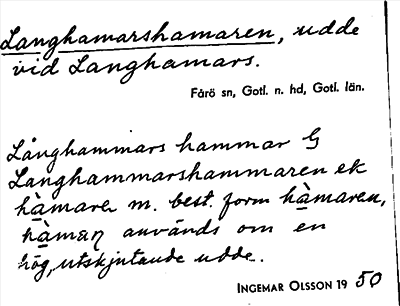 Langhamarshamaren, udde
vid Langhamars.
Fårö sn, Gotl. n. hd, Gotl. län.
Långhammars hammar G
Langhammarshammaren ek
hàmaren m. best. form hàmaren,
hàmaŋ används om en
hög, utskjutande udde.
INGEMAR OLSSON 1950